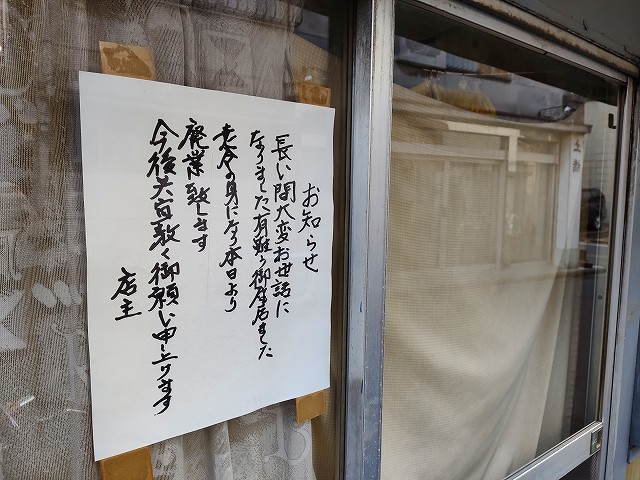 お知らせ
長い間大変お世話に
なりました有難う御座居ました
老令の身になり本日より
廃業致します
今後共宜敷く御願い申し上ります
店主